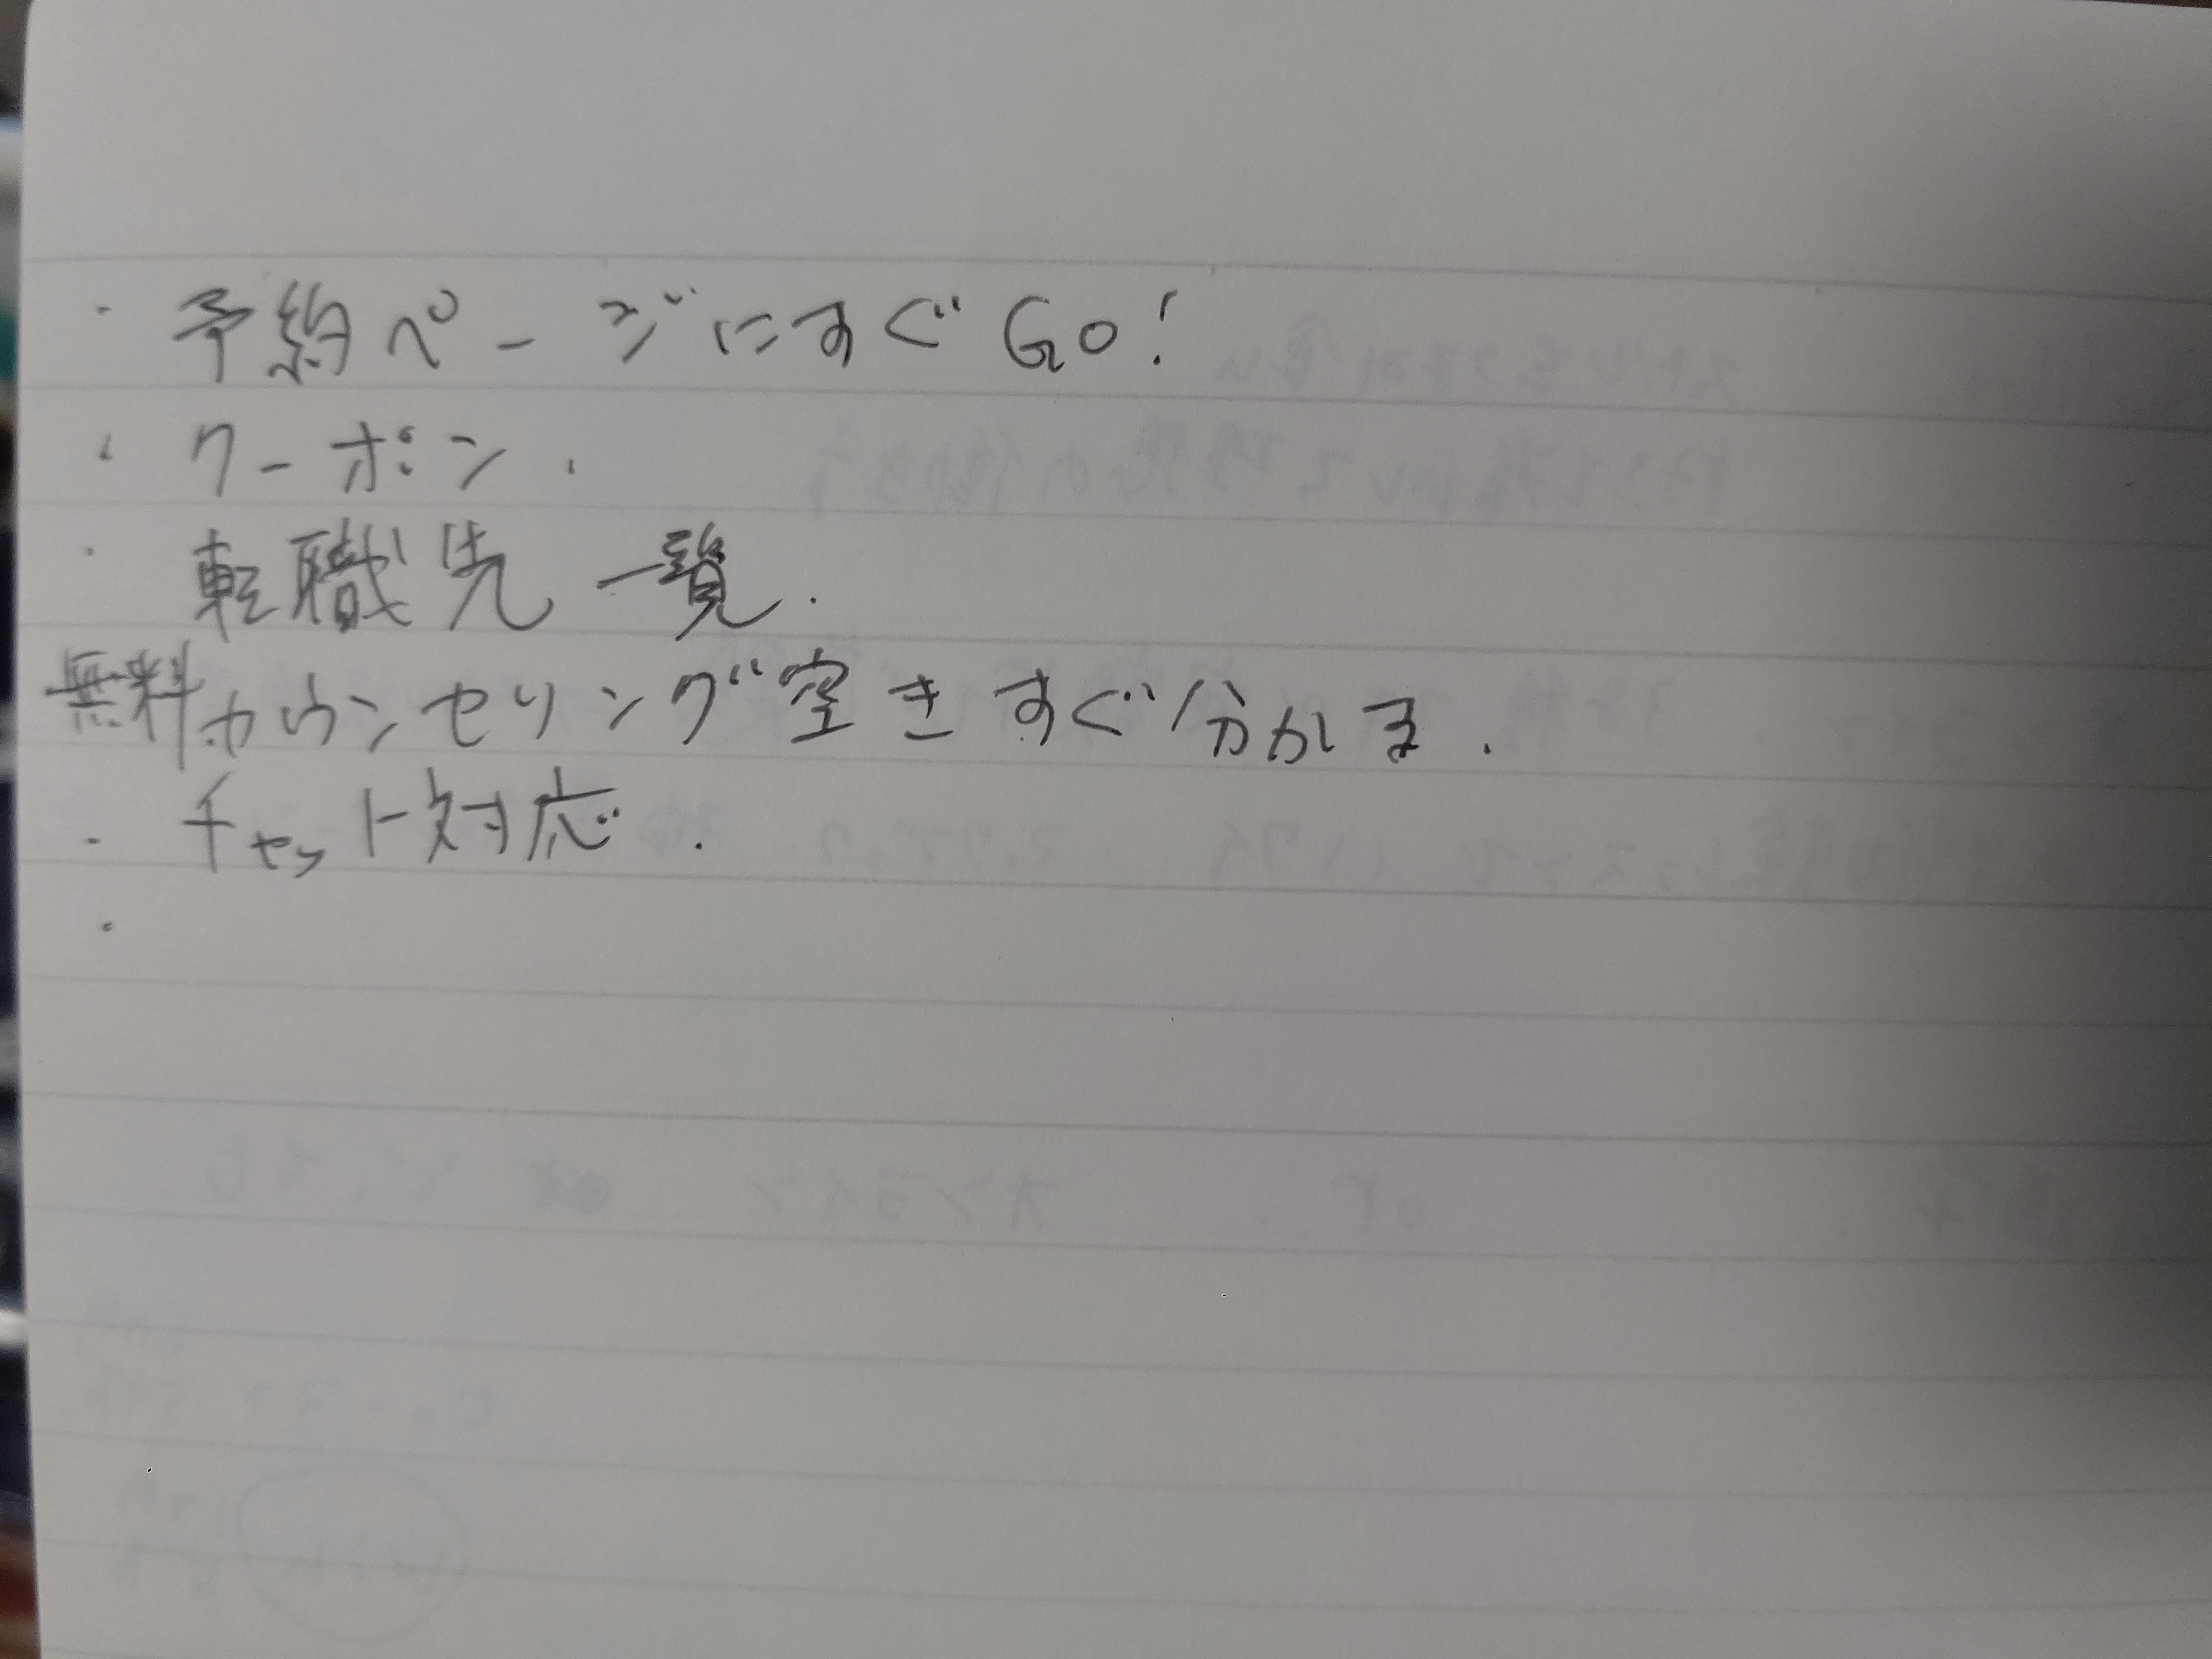 ・予約ページにすぐGo!
・クーポン.
・転職先一覧.
無料カウンセリング空きすぐ分かる.
・チャット対応.
・